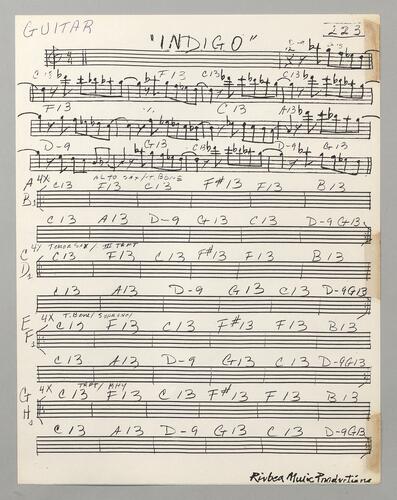 GUITAR
"INDIGO"
223
C13 F13 C13 C13
F13 ٪ C13 A13
D-9 G13 C13 D-9 G13
A 4X ALTO SAX/T.BONE
B C13 F13 C13 F#13 F13 B13
C13 A13 D-9 G13 C13 D-9 G13
C 4X TENOR SAX/ III TRPT
D C13 F13 C13 F#13 F13 B13
C13 A13 D-9 G13 C13 D-9 G13
E 4X T.BONE/ SOPRANO/
F C13 F13 C13 F#13 F13 B13
C13 A13 D-9 G13 C13 D-9G13
G 4X TRPT/ RHY
H C13 F13 C13 F#13 F13 B13
C13 A13 D-9 G13 C13 D-9 G13
Rivbea Music Productions